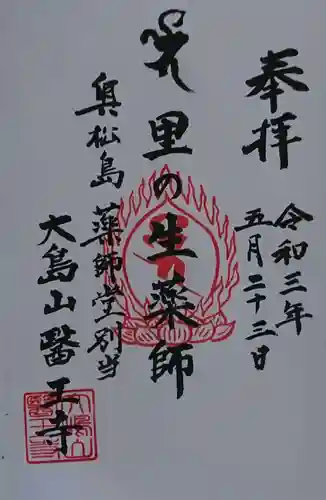 奉拝
令和三年
五月二十三日
里の生薬師
奥松島
薬師堂別当
大島山醫王寺